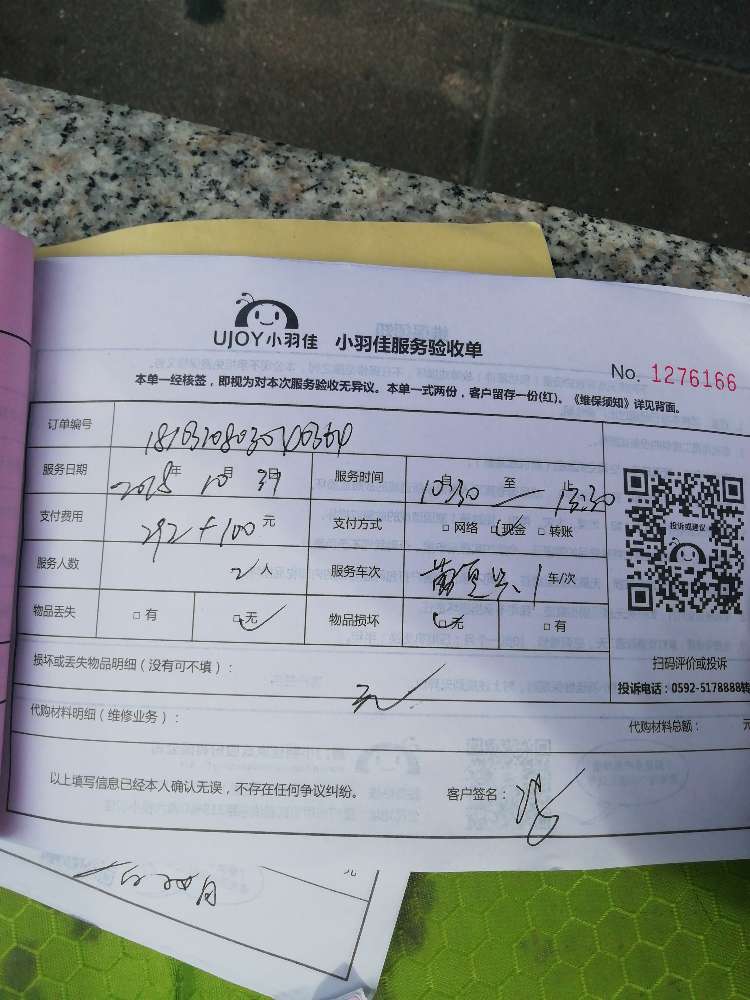 UJOY小羽佳 小羽佳服务验收单
No. 1276166
本单一经核签，即视为对本次服务验收无异议。本单一式两份，客户留存一份(红)。《维保须知》详见背面。
订单编号
服务日期 2018年 10月 31日 服务时间 自 10:30 至 止
支付费用 292+100元 支付方式 □ 网络 □ 现金 □ 转账
服务人数 2人 服务车次 1 车/次
物品丢失 □ 有 □ 无 物品损坏 □ 无 □ 有
投诉或建议
扫码评价或投诉
投诉电话：0592-5178888转
损坏或丢失物品明细（没有可不填）：
无
代购材料明细（维修业务）： 代购材料总额： 元
以上填写信息已经本人确认无误，不存在任何争议纠纷。 客户签名：
元